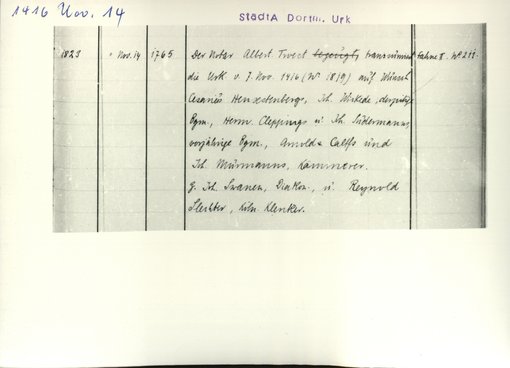 1416 Nov. 14
StadtA Dortm. Urk
1823 " Nov. 14 1765 Der Notar Albert Twect bezeugt, transsumiert Fahne II Nº 211.
die Urk v. 7. Nov. 1416 (Nº 1819) auf Wunsch
Hengstenbergs, Joh. Wickede, derzeitige
Bgm., Herm. Cleppings u. Joh. Südermanns,
vorjährige Bgm., Arnolds Calffs und
Joh. Murmanns, Kämmerer.
Z. Joh. Swanen, Diakon, u. Reynold
Slechter, Köln. Kleriker.